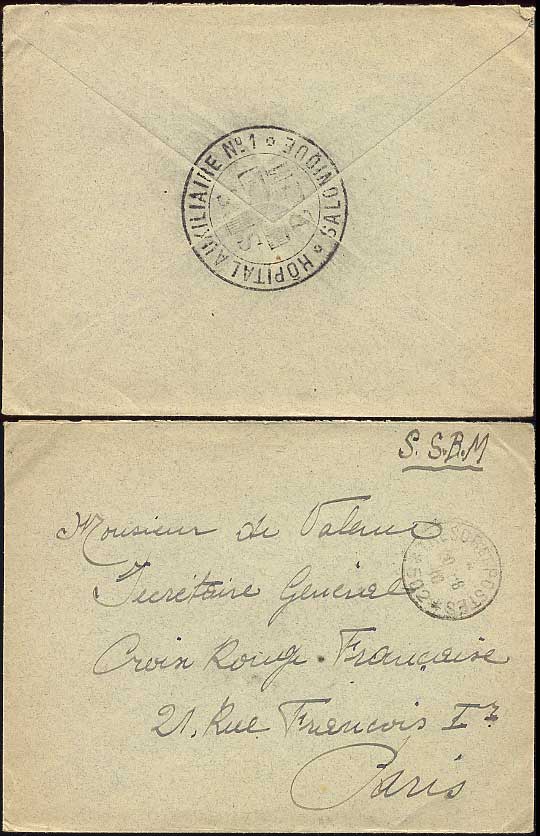 HÔPITAL AUXILIAIRE No. 1 * SALONIQUE *
S. S.B.M
Monsieur de Valence
Secrétaire Général
Croix Rouge Française
21, Rue François Ier
Paris
TRESOR ET POSTES * 502 *